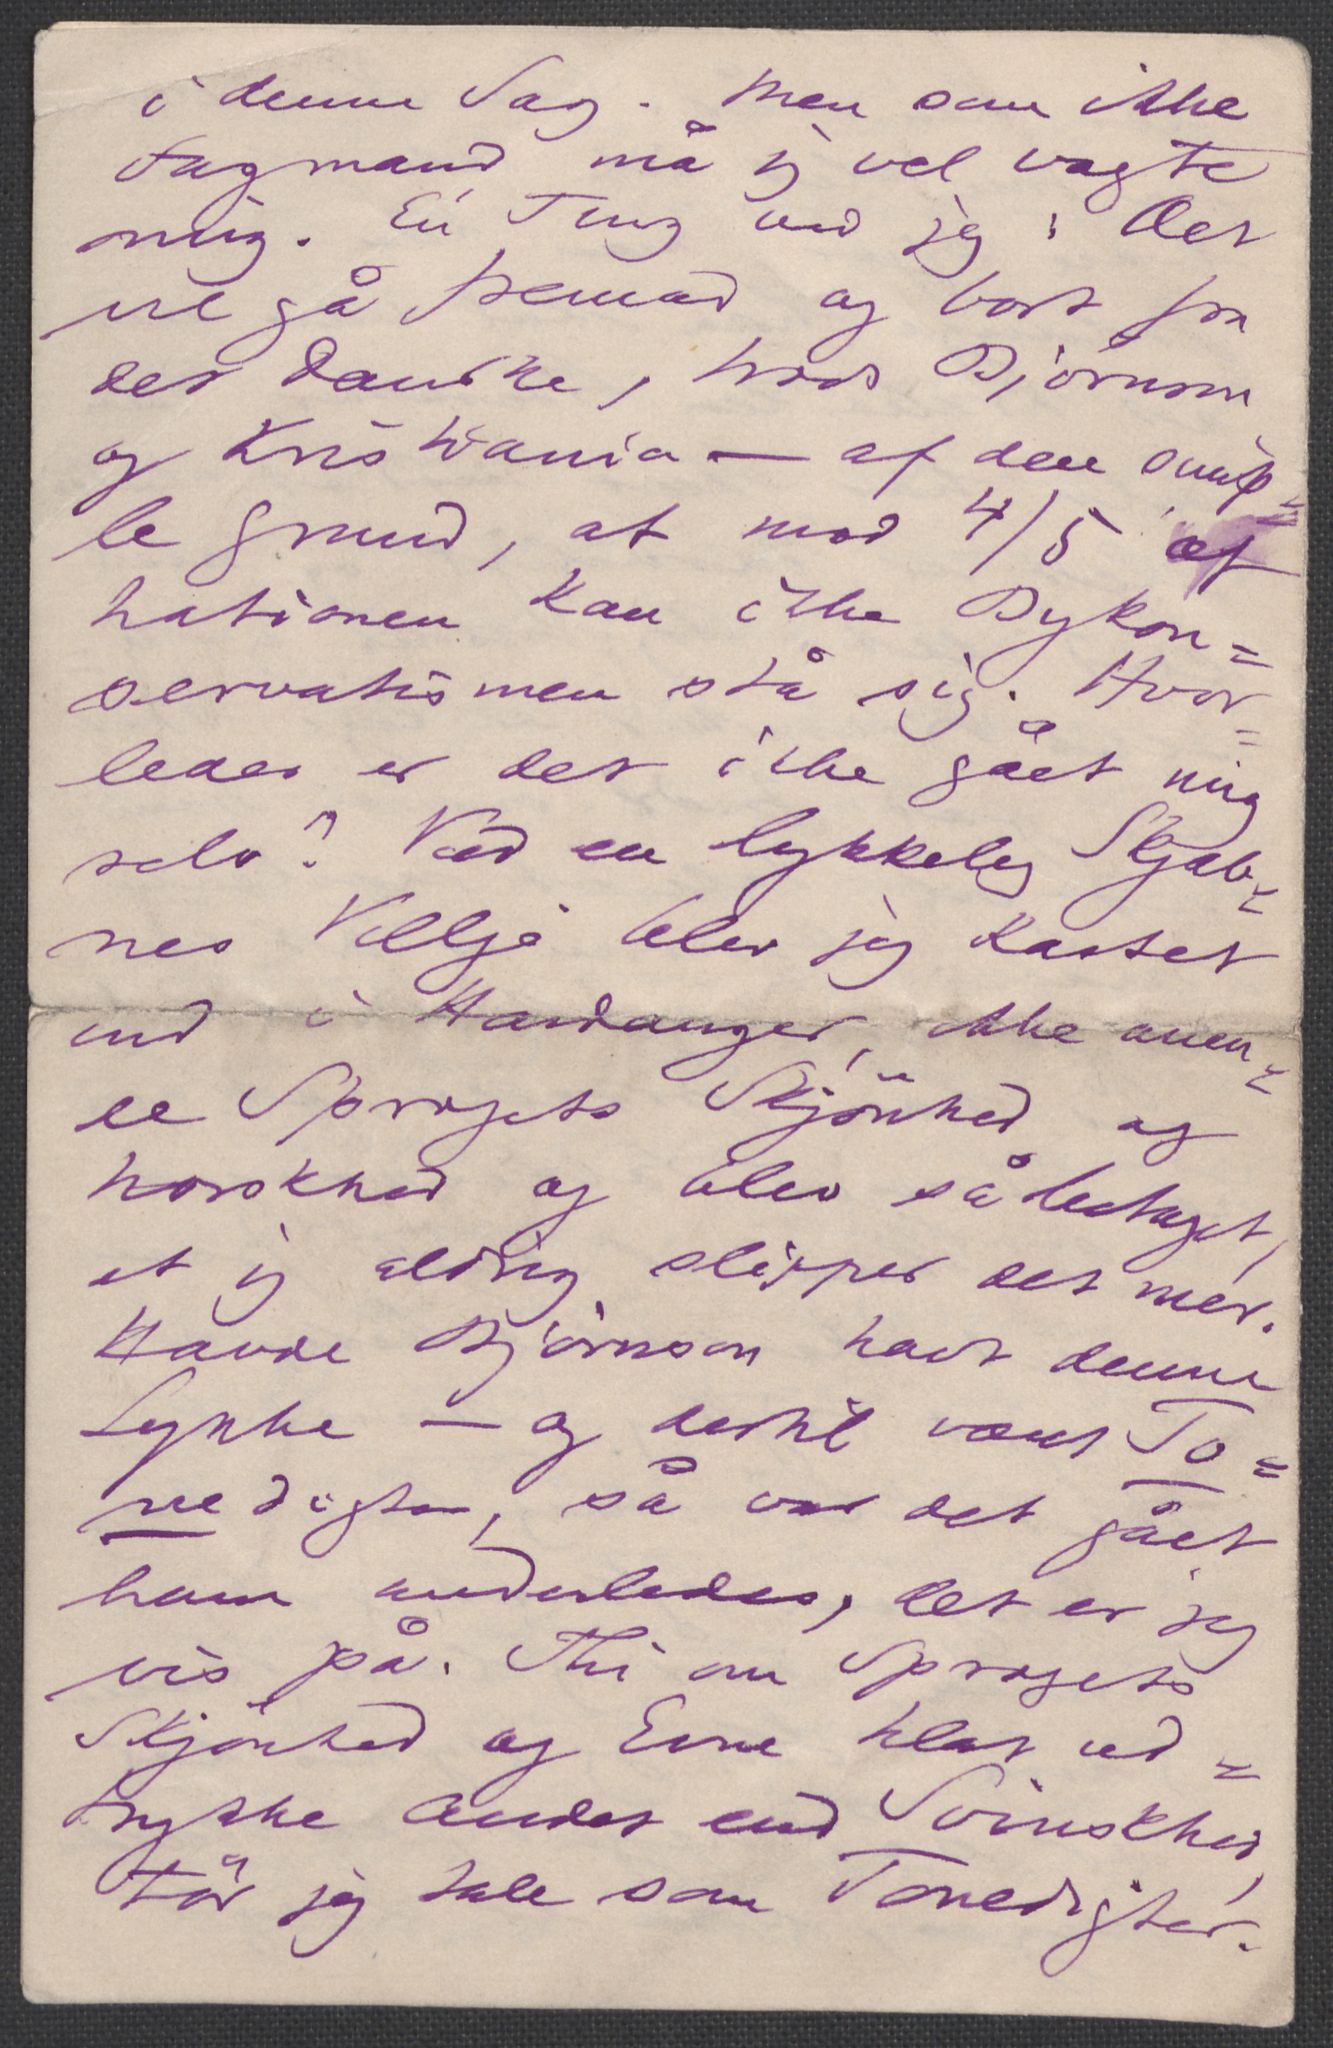 i denne Sag. Men som ikke
Fagmand må jeg vel vogte
mig. En Ting ved jeg: Det
vil gå fremad og bort fra
det Danske, trods Björnson
og Kristiania — af den simp=
le Grund, at mod 4/5 af
Nationen kan ikke Bykon=
servatismen stå sig. Hvor=
ledes er det ikke gået mig
selv? Ved en lykkelig Skjæb=
nes Villje blev jeg kastet
ind i Hardanger, ikke anen=
de Sprogets Skjönhed og
Norskhed og blev så betaget,
at jeg aldrig slipper det mer.
Havde Björnson havt denne
Lykke — og dertil været To=
nedigter, så var det gået
ham anderledes, det er jeg
vis på. Thi om Sprogets
Skjönhed og Evne til at ud=
trykke Andet end Svinskhed,
tör jeg tale som Tonedigter.